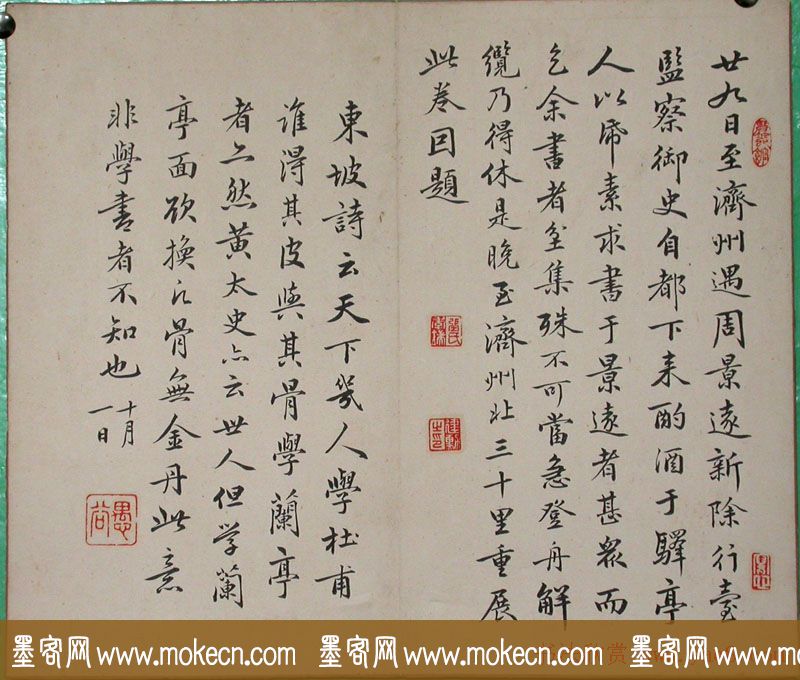 廿九日至濟州遇周景遠新除行臺
監察御史自都下来酌酒于驛亭
人以㡤素求書于景遠者甚衆而
乞余書者坌集殊不可當急登舟解
纜乃得休是晚至濟州北三十里重展
此卷因題
東坡詩云天下幾人學杜甫
誰得其皮與其骨學蘭亭
者亦然黄太史亦云世人但学蘭
亭面欲換凡骨無金丹此意
非學書者不知也
十月
一日
愚谷
墨客网 www.mokecn.com 墨客网 www.mokecn.com 墨客网 www.mokecn.com
赏